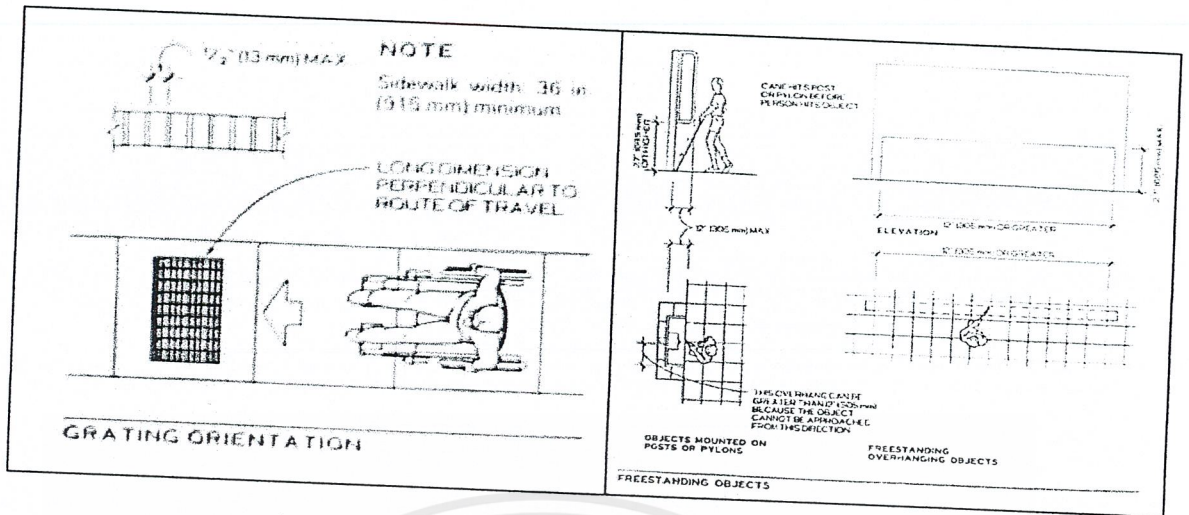 1/2" (13 mm) MAX
NOTE
Sidewalk width: 36 in
(915 mm) minimum
LONG DIMENSION
PERPENDICULAR TO
ROUTE OF TRAVEL
GRATING ORIENTATION
CANE HITS POST
OR PYLON BEFORE
PERSON HITS OBJECT
27" (685 mm)
OR HIGHER
12" (305 mm) MAX
THIS OVERHANG CAN BE
GREATER THAN 12" (305 mm)
BECAUSE THE OBJECT
CANNOT BE APPROACHED
FROM THIS DIRECTION
OBJECTS MOUNTED ON
POSTS OR PYLONS
27" (685 mm) MAX.
12" (305 mm) OR GREATER
ELEVATION
12" (305 mm) OR GREATER
FREESTANDING
OVERHANGING OBJECTS
FREESTANDING OBJECTS